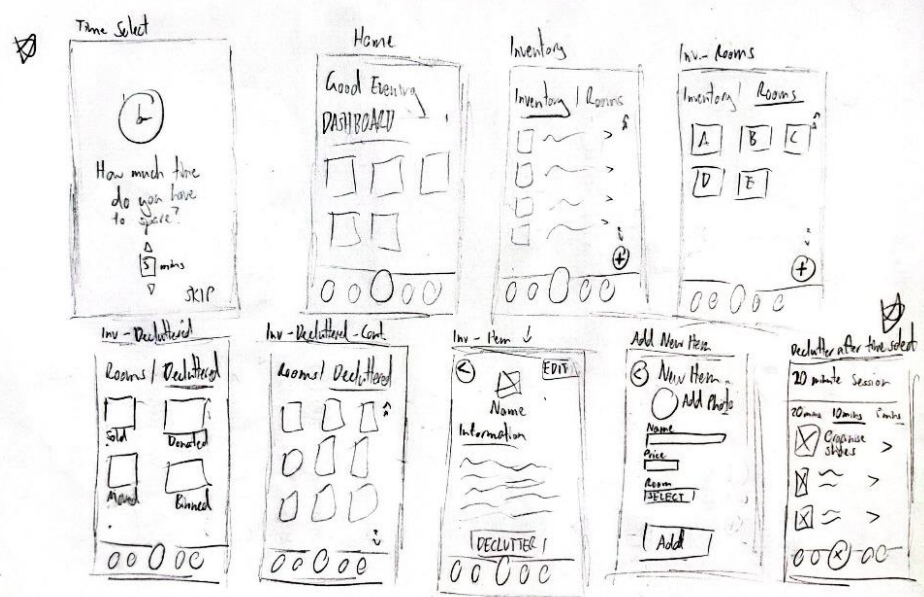 Time Select
How much time
do you have
to spare?
5 mins
SKIP
Home
Good Evening
DASHBOARD
Inventory
Inventory / Rooms
Inv - Rooms
Inventory / Rooms
A B C
D E
Inv - Decluttered
Rooms / Decluttered
Sold Donated
Moved Binned
Inv - Decluttered - Cont.
Rooms / Decluttered
Inv - Item
EDIT
Name
Information
DECLUTTER
Add New Item
New Item
Add Photo
Name
Price
Room
SELECT
Add
Declutter after time select
20 minute Session
20 mins 10 mins 5 mins
Organise